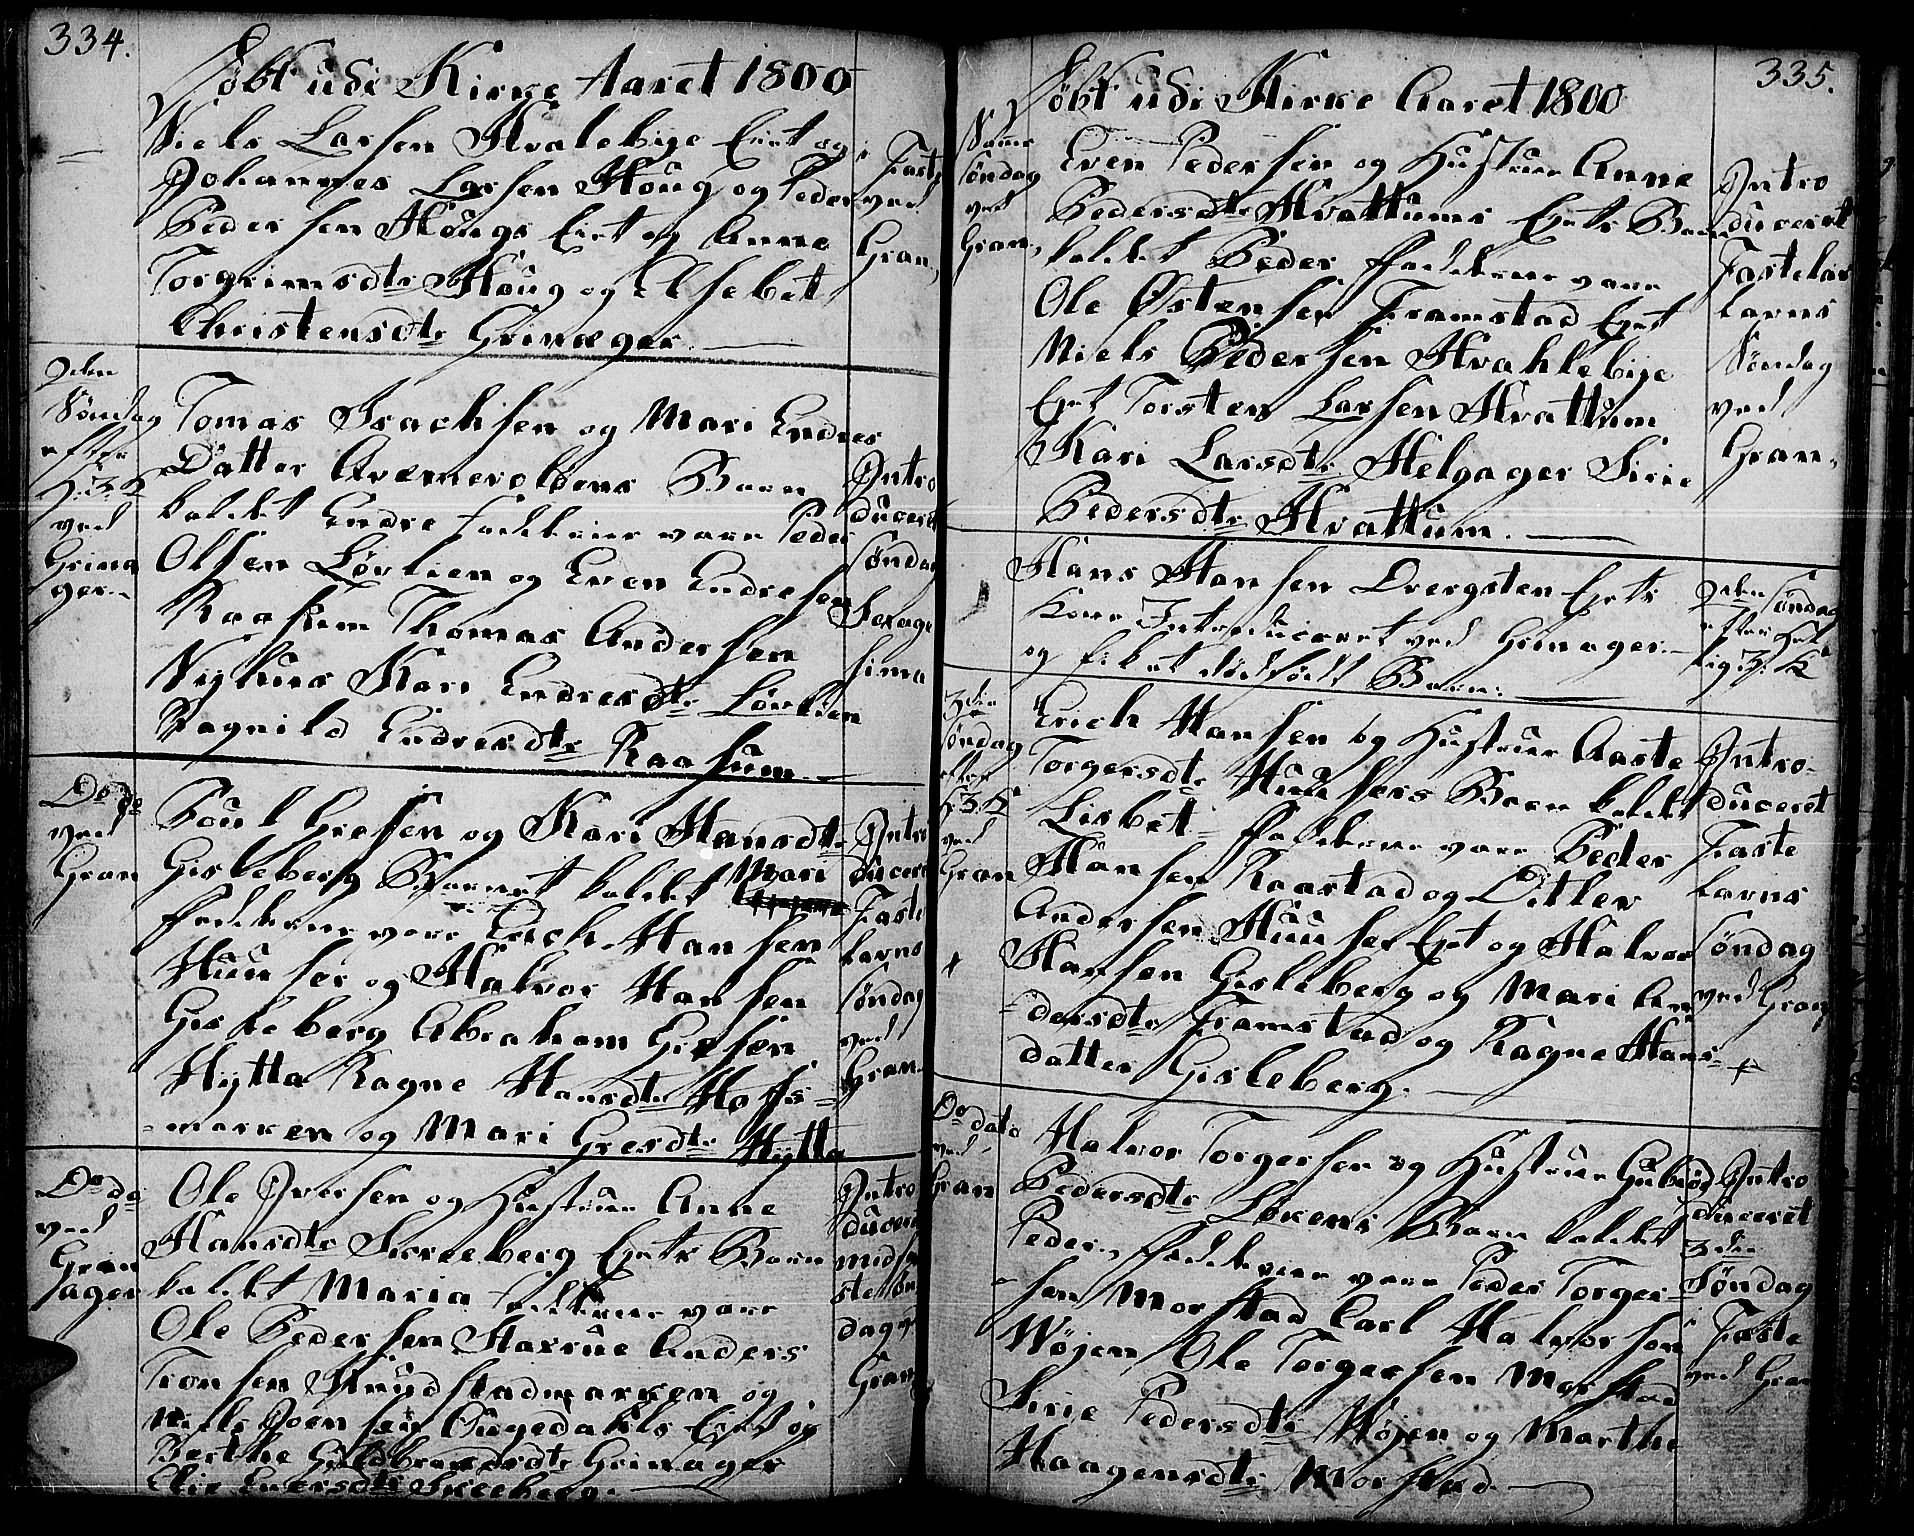 334.
Døbt udi Kirke Aaret 1800
Niels Larsen Hvalebye Eiet og
Johannes Larsen Houg og Peder
Pedersen Hougs Eiet og Anne
Torgrimsdtr Houg og Elsebet
Christensdtr Grinager.
Fast
ved
Gran,
2den
Søndag
efter
H. 3. K
ved
Grina
ger.
Tomas Isachsen og Mari Endres
Datter Barn
kaldet Endre fadderne vare Peder
Olsen Løvlien og Even Endresen
Raasum Thomas Andersen
Nyhuus Kari Endresdtr Løvlien
Ragnild Endresdtr Raasum.
Intro
duceret
Søndag
Sexage
sima
Do do
ved
Gran
Poul Gresen og Kari Hansdtr
Gisleberg Barnet kaldet Mari
fadderne vare Erich Hansen
Huuser og Halvor Hansen
Gisleberg Abraham Gresen
Hytta Ragne Hansdtr Hofs=
=marken og Mari Gresdtr Hytta
Intro
duceret
Faste
lavns
Søndag
ved
Gran
Do do
ved
Grin
ager
Ole Iversen og Hustrue Anne
Hansdtr Skreeberg Eiets Barn
kaldet Maria fadderne vare
Ole Pedersen Anders
Tronsen Hvidstadmarken og
Niels Joensen Eiet og
Berthe Guldbrandsdtr Grinager
Elie Eversdtr Skreeberg.
Intro
duceret
midfa
ste Søn
dag
Gran
335.
Døbt udi Kirke Aaret 1800
Søndag
ved
Gran,
Even Pedersen og Hustrue Anne
Pedersdtr Hvattums Eiets Barn
kaldet Peder fadderne vare
Ole Østensen Framstad Eiet
Niels Pedersen Hvahlebye
Eiet Torsten Larsen Hvattum
Kari Larsdtr Helgager Sirie
Pedersdtr Hvattum.
Intro
duceret
Fastelav
lavns
Søndag
ved
Gran,
Hans Hansen Dvergsten Eiets
Kone Introduceret ved Grinager
og fikat dødfødt Barn.
2den Søndag
efter Hel
lig 3. K
3die
Søndag
efter
H. 3. K
ved
Gran
Erich Hansen og Hustrue Aaste
Torgersdtr Huusers Barn kaldet
Lisbet fadderne vare Peder
Hansen Raastad og Ditlev
Andersen Huuser Eiet og Halvor
Hansen Gisleberg og Mari An
=dersdtr Framstad og Ragne Hans=
datter Gisleberg.
Intro=
duceret
Faste
lavns
Søndag
ved Gran
Do dato
ved
Gran
Halvor Torgersen og Hustrue Gubiør
Pedersdtr Løkens Barn kaldet
Peder, fadderne vare Peder Torger=
=sen Morstad Carl Halvorsen
Wøjen Ole Torgersen Morstad
Sirie Pedersdtr Wøjen og Marthe
Haagensdtr Morstad
Intro
duceret
3die
Søndag
i Faste
ved Gran